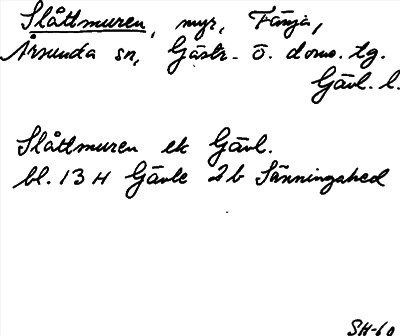 Slåttmuren, myr, Fänja,
Årsunda sn, Gästr. ö. doms. tg.
Gävl. l.
Slåttmuren ek Gävl.
bl. 13 H Gävle 2 b Sänningahed
SH-60